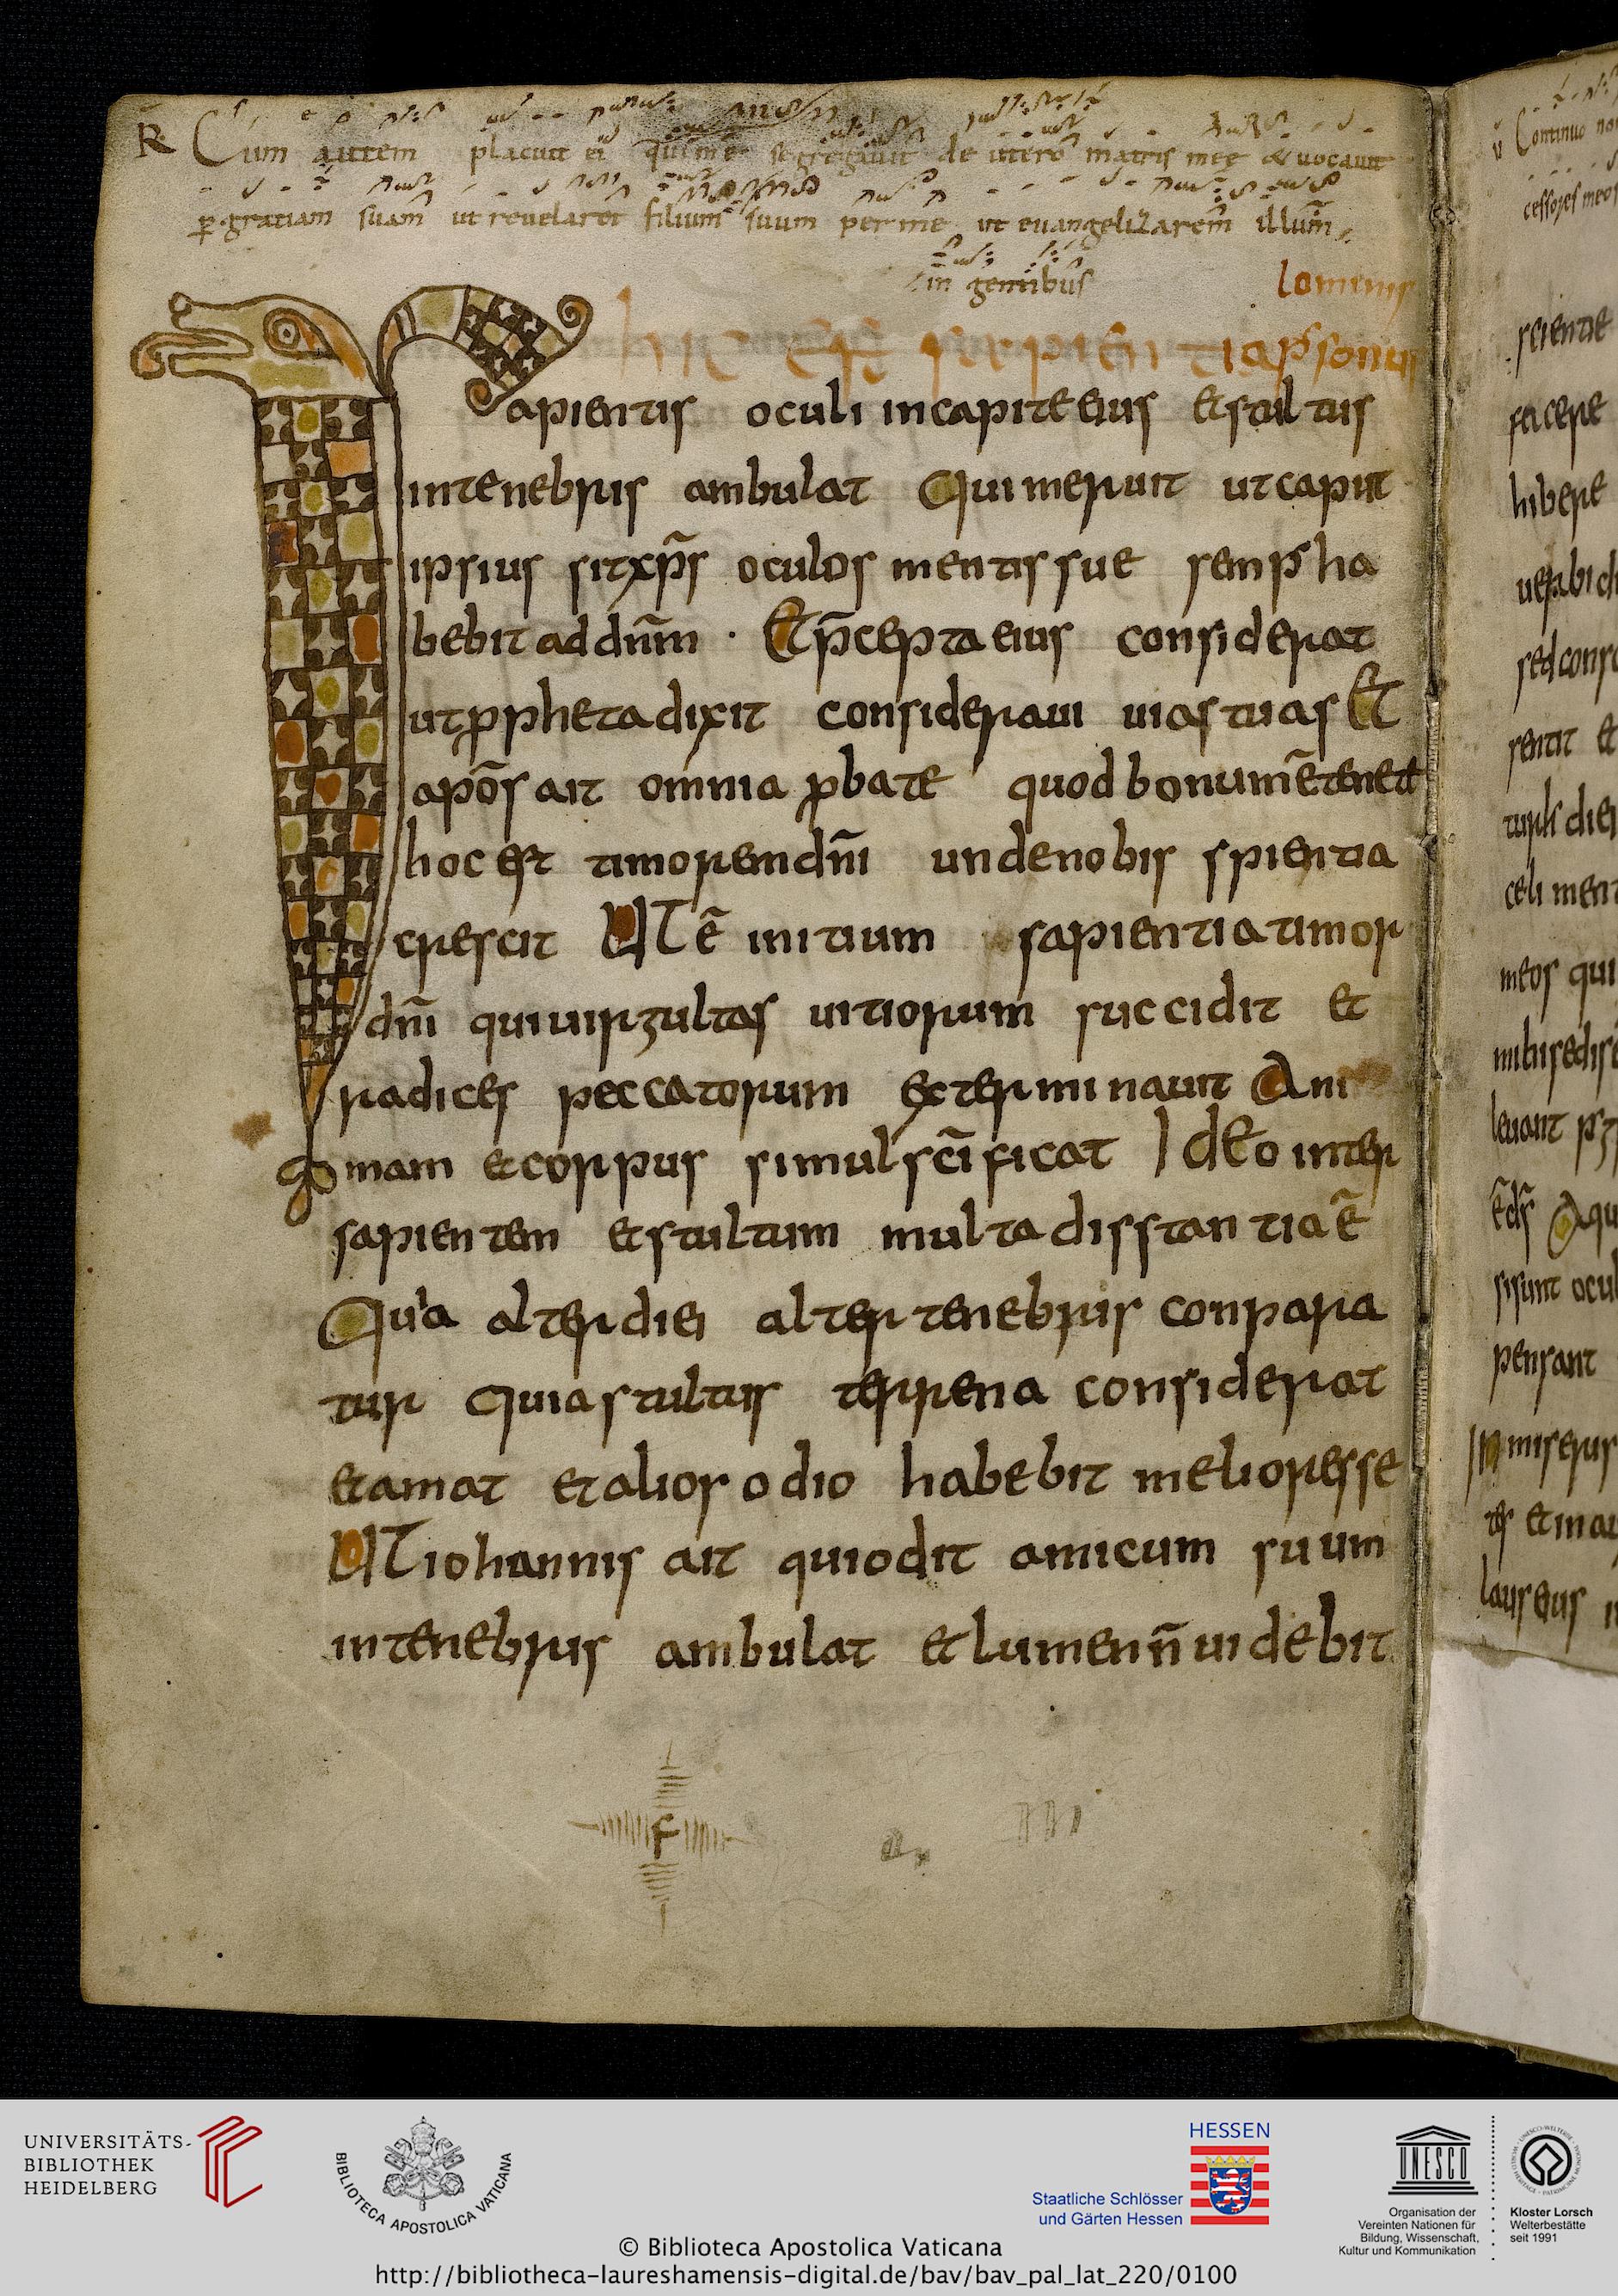 R Cum autem placuit ei qui me segregavit de utero matris mee & vocavit
p gratiam suam ut revelaret filium suum per me ut evangelizarem illum
in gentibus
lomenis
hic est sapientia psonus
Sapientis oculi incapiteeius etstultus
intenebris ambulat Quimeruit utcaput
ipsius sitxp̄s oculos mentissue semp ha
bebit addn̄m · Etp̄cepta eius considerat
utpphetadixit consideraui uiastuas Et
apōs ait omnia pbate quodbonumētenete
hoc est timoremdn̄i undenobis spientia
crescit UTē initium sapientiatimor
dn̄i quiuirgultas uitiorum succidit et
radices peccatorum exterminauit Ani
mam etcorpus simulsc̄ificat Ideo inter
sapientem etstultum multa disstantiaē
Quia alterdiei alter tenebris conpara
tur Quiastultus terrena considerat
etamat etalios odio habebit melioresse
UTiohannis ait quiodit amicum suum
intenebris ambulat etlumenn̄uidebit
v Continuo non
cessores meos
scientie
facere
hibere
uerbi
sedcons
sentit et
turls diei
celi ment
meos qui
mihisedis
leuant
ēds Aqu
sisunt ocul
pensant
miserus
tes etmar
lauseius
UNIVERSITÄTS-
BIBLIOTHEK
HEIDELBERG
BIBLIOTECA APOSTOLICA VATICANA
HESSEN
Staatliche Schlösser
und Gärten Hessen
UNESCO
Organisation der
Vereinten Nationen für
Bildung, Wissenschaft,
Kultur und Kommunikation
Kloster Lorsch
Welterbestätte
seit 1991
© Biblioteca Apostolica Vaticana
http://bibliotheca-laureshamensis-digital.de/bav/bav_pal_lat_220/0100